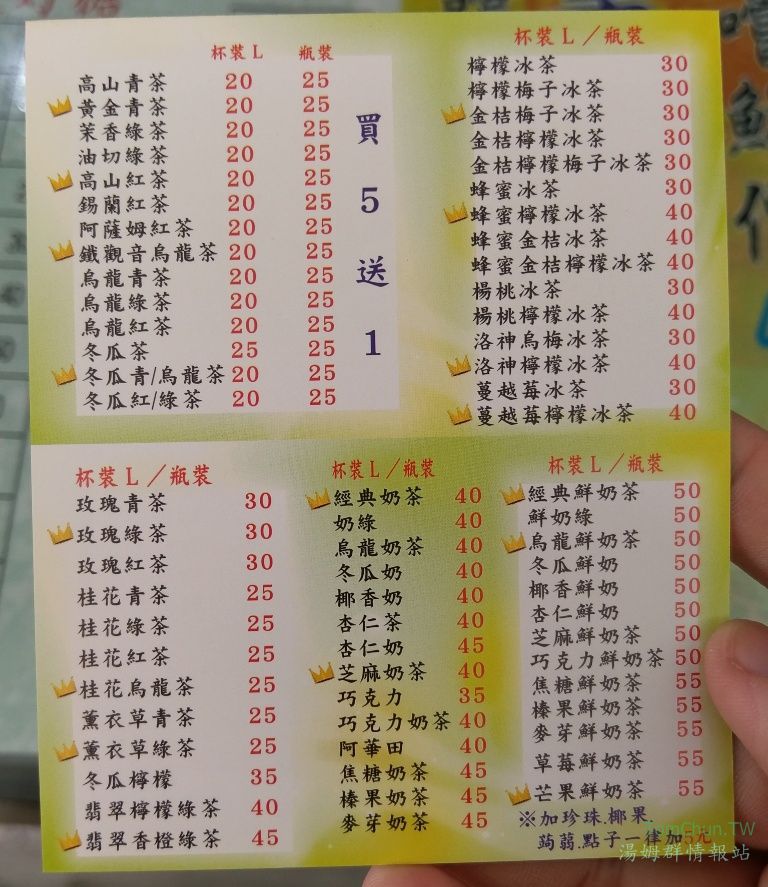 杯裝L 瓶裝
高山青茶 20 25
黃金青茶 20 25
茉香綠茶 20 25
油切綠茶 20 25
高山紅茶 20 25
錫蘭紅茶 20 25
阿薩姆紅茶 20 25
鐵觀音烏龍茶 20 25
烏龍青茶 20 25
烏龍綠茶 20 25
烏龍紅茶 20 25
冬瓜茶 25 25
冬瓜青/烏龍茶 20 25
冬瓜紅/綠茶 20 25
買5送1
杯裝L/瓶裝
檸檬冰茶 30
檸檬梅子冰茶 30
金桔梅子冰茶 30
金桔檸檬冰茶 30
金桔檸檬梅子冰茶 30
蜂蜜冰茶 30
蜂蜜檸檬冰茶 40
蜂蜜金桔冰茶 40
蜂蜜金桔檸檬冰茶 40
楊桃冰茶 30
楊桃檸檬冰茶 40
洛神烏梅冰茶 30
洛神檸檬冰茶 40
蔓越莓冰茶 30
蔓越莓檸檬冰茶 40
杯裝L/瓶裝
玫瑰青茶 30
玫瑰綠茶 30
玫瑰紅茶 30
桂花青茶 25
桂花綠茶 25
桂花紅茶 25
桂花烏龍茶 25
薰衣草青茶 25
薰衣草綠茶 25
冬瓜檸檬 35
翡翠檸檬綠茶 40
翡翠香橙綠茶 45
杯裝L/瓶裝
經典奶茶 40
奶綠 40
烏龍奶茶 40
冬瓜奶 40
椰香奶 40
杏仁茶 40
杏仁奶 45
芝麻奶茶 40
巧克力 35
巧克力奶茶 40
阿華田 40
焦糖奶茶 45
榛果奶茶 45
麥芽奶茶 45
杯裝L/瓶裝
經典鮮奶茶 50
鮮奶綠 50
烏龍鮮奶茶 50
冬瓜鮮奶 50
椰香鮮奶 50
杏仁鮮奶 50
芝麻鮮奶茶 50
巧克力鮮奶茶 50
焦糖鮮奶茶 55
榛果鮮奶茶 55
麥芽鮮奶茶 55
草莓鮮奶茶 55
芒果鮮奶茶 55
※加珍珠.椰果
蒟蒻.點子一律加5元
TomChun.TW
湯姆群情報站